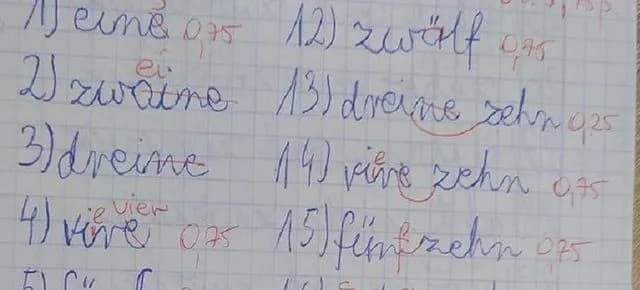 1) eine 0,75
ei
2) zwaine
3) dreine
e vier
4) vire 0,75
12) zwölf 0,75
13) dreine zehn 0,25
e
14) vire zehn 0,75
15) fünfzehn 0,75